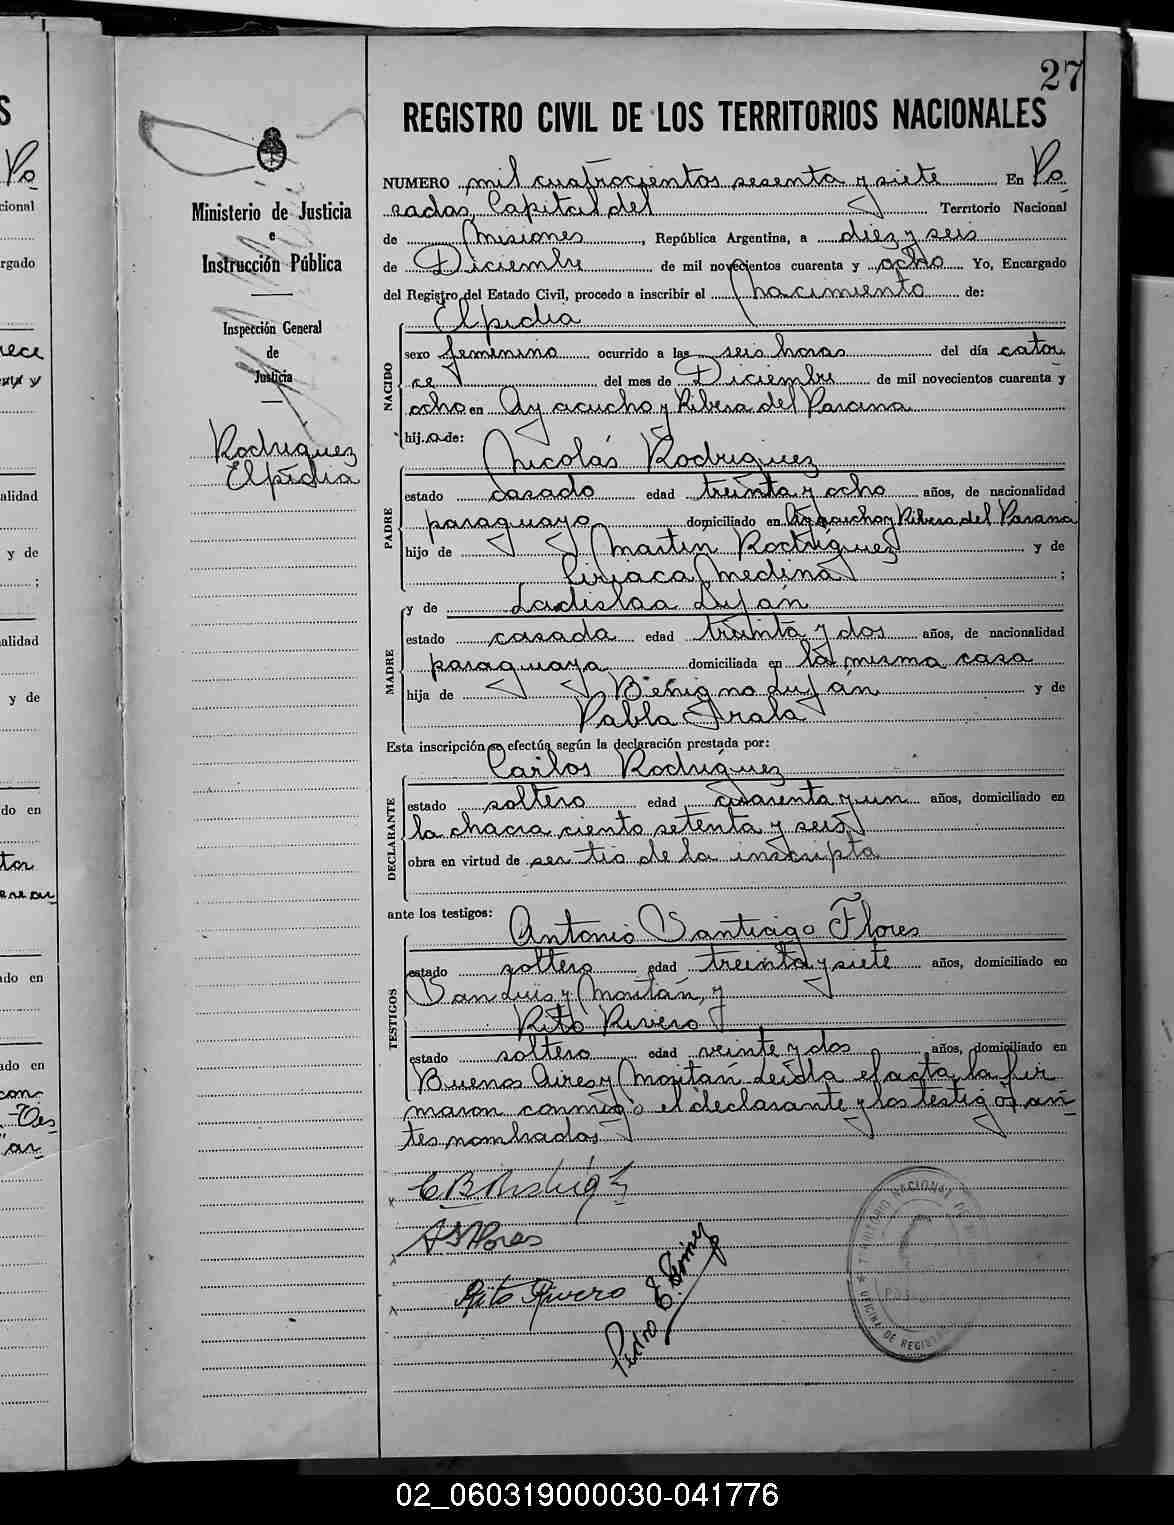 27
REGISTRO CIVIL DE LOS TERRITORIOS NACIONALES
Ministerio de Justicia
e
Instrucción Pública
Inspección General
de
Justicia
Rodríguez
Elpidia
NUMERO mil cuatrocientos sesenta y siete En Po
sadas, Capital del Territorio Nacional
de Misiones, República Argentina, a diez y seis
de Diciembre de mil novecientos cuarenta y ocho Yo, Encargado
del Registro del Estado Civil, procedo a inscribir el nacimiento de:
Elpidia
NACIDO
sexo femenino ocurrido a las seis horas del día cator
ce del mes de Diciembre de mil novecientos cuarenta y
ocho en Ayacucho y Ribera del Parana
hija de:
Nicolás Rodriguez
PADRE
estado casado edad treinta y ocho años, de nacionalidad
paraguayo domiciliado en Ayacucho y Ribera del Parana
hijo de Martin Rodríguez y de
Ciriaca Medina;
y de Ladislaa Luján
MADRE
estado casada edad treinta y dos años, de nacionalidad
paraguaya domiciliada en la misma casa
hija de Benigno Luján y de
Pabla Irala
Esta inscripción se efectúa según la declaración prestada por:
Carlos Rodríguez
DECLARANTE
estado soltero edad cuarenta y un años, domiciliado en
la chacra ciento setenta y seis
obra en virtud de ser tio de la inscripta
ante los testigos:
Antonio Santiago Flores
TESTIGOS
estado soltero edad treinta y siete años, domiciliado en
San Luis y Moritán, y
Rito Rivero
estado soltero edad veinte y dos años, domiciliado en
Buenos Aires y Moritán Leída el acta, la fir
maron conmigo el declarante y los testigos an
tes nombrados
A S Flores
Rito Rivero
Pedro E. Gimez
TERRITORIO NACIONAL DE
OFICINA DE REGISTRO
02_060319000030-041776